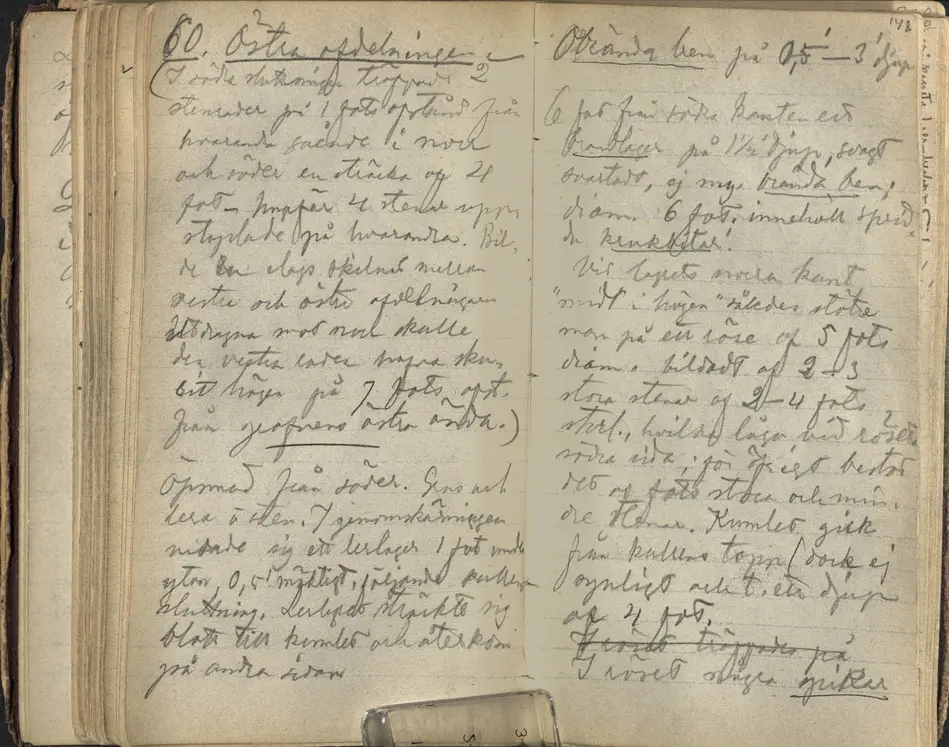 60. Östra afdelningen.
(I södra sluttningen träffades 2
stenrader på 1 fots afstånd från
hvarandra gående i norr
och söder en sträcka af 4
fot – ungefär 4 stenar upp-
staplade på hvarandra. Bil-
de en slags skilnad mellan
vestra och östra afdelningarna
Utdragna mot norr skulle
den vestra raden sku-
rit högen på 7 fots afst.
från grafvens östra ända.)
Öpnad från söder. Grus och
lera ö sten. I genomskärningen
visade sig ett lerlager 1 fot under
ytan, 0,5' mäktigt, följande kullens
sluttning. Lerlagret sträckte sig
blott till kumlet och återkom
på andra sidan
148
Obrända ben på 0,5' – 3' djup
6 fot från södra kanten ett
Brandlager på 1½' djup, svagt
svartadt, ej myc brända ben;
diam. 6 fot. innehöll sprid-
da krukbitar.
Vid lagrets norra kant
"midt i högen" således stötte
man på ett röse af 5 fots
diam. bildadt af 2–3
stora stenar af 2–4 fots
storl., hvilka lågo vid rösets
södra sida; för öfrigt bestod
det af fots stora och min-
dre stenar. Kumlet gick
från kullens topp (dock ej
synligt ) t. ett djup
af 4 fot.
I röset träffades på
I röset några spikar